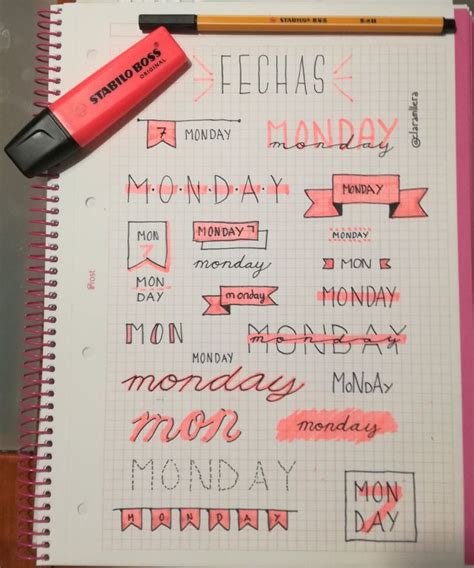 STABILO BOSS
STABILO BOSS
ORIGINAL
FECHAS
@claramllera
7 MONDAY
MONDAY
monday
M·O·N·D·A·Y
MONDAY
MON
7
MON
DAY
MONDAY 7
monday
MONDAY
MON
monday
MONDAY
MON
MONDAY
MONDAY
monday
monday
MoNdAy
mon
monday
MONDAY
MONDAY
MON
7
DAY